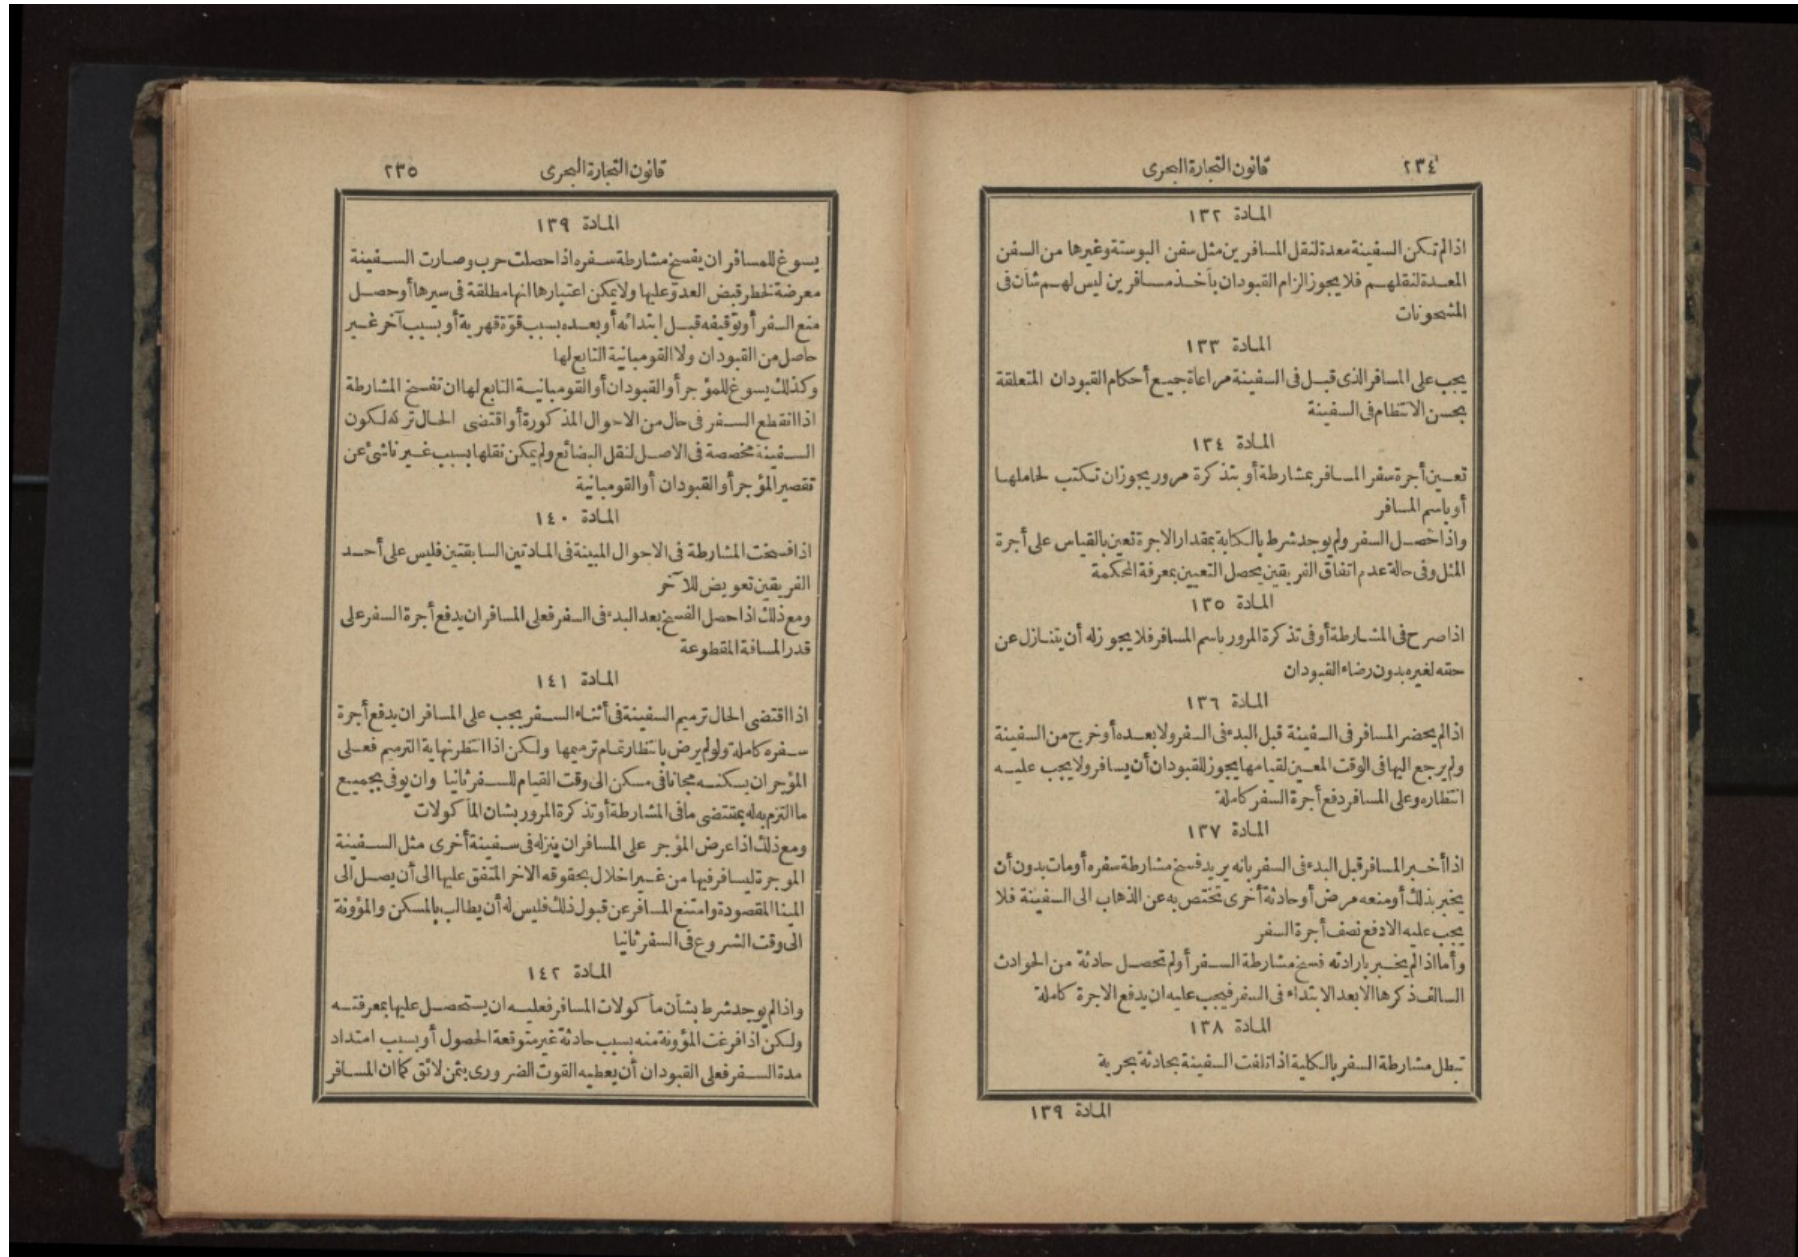 ٢٣٤
قانون التجارة البحرى
المادة ١٣٢
اذا لم تكن السفينة معدة لنقل المسافرين مثل سفن البوستة وغيرها من السفن
المعدة لنقلهم فلا يجوز الزام القبودان بأخذ مسافرين ليس لهم شأن فى
المشحونات
المادة ١٣٣
يجب على المسافر الذى قبل فى السفينة مراعاة جميع أحكام القبودان المتعلقة
بحسن الانتظام فى السفينة
المادة ١٣٤
تعين أجرة سفر المسافر بمشارطة أو بتذكرة مرور يجوز ان تكتب لحاملها
أو باسم المسافر
واذا حصل السفر ولم يوجد شرط بالكتابة بمقدار الاجرة تعين بالقياس على أجرة
المثل وفى حالة عدم اتفاق الفريقين يحصل التعيين بمعرفة المحكمة
المادة ١٣٥
اذا صرح فى المشارطة أو فى تذكرة المرور باسم المسافر فلا يجوز له أن يتنازل عن
حقه لغيره بدون رضاء القبودان
المادة ١٣٦
اذا لم يحضر المسافر فى السفينة قبل البدء فى السفر ولا بعده أو خرج من السفينة
ولم يرجع اليها فى الوقت المعين لقيامها يجوز للقبودان أن يسافر ولا يجب عليه
انتظاره وعلى المسافر دفع أجرة السفر كاملة
المادة ١٣٧
اذا أخبر المسافر قبل البدء فى السفر بانه يريد فسخ مشارطة سفره أو مات بدون أن
يخبر بذلك أو منعه مرض أو حادثة أخرى تختص به عن الذهاب الى السفينة فلا
يجب عليه الا دفع نصف أجرة السفر
وأما اذا لم يخبر بارادته فسخ مشارطة السفر أو لم تحصل حادثة من الحوادث
السالف ذكرها الا بعد الابتداء فى السفر فيجب عليه ان يدفع الاجرة كاملة
المادة ١٣٨
تبطل مشارطة السفر بالكلية اذا تلفت السفينة بحادثة بحرية
المادة ١٣٩
قانون التجارة البحرى
٢٣٥
المادة ١٣٩
يسوغ للمسافر ان يفسخ مشارطة سفره اذا حصلت حرب وصارت السفينة
معرضة لخطر قبض العدوّ عليها ولا يمكن اعتبارها انها مطلقة فى سيرها أو حصل
منع السفر أو توقيفه قبل ابتدائه أو بعده بسبب قوّة قهرية أو بسبب آخر غير
حاصل من القبودان ولا القومبانية التابع لها
وكذلك يسوغ للمؤجر أو القبودان أو القومبانية التابع لها ان تفسخ المشارطة
اذا انقطع السفر فى حال من الاحوال المذكورة أو اقتضى الحال تركه لكون
السفينة مخصصة فى الاصل لنقل البضائع ولم يمكن نقلها بسبب غير ناشئ عن
تقصير المؤجر أو القبودان أو القومبانية
المادة ١٤٠
اذا فسخت المشارطة فى الاحوال المبينة فى المادتين السابقتين فليس على أحد
الفريقين تعويض للآخر
ومع ذلك اذا حصل الفسخ بعد البدء فى السفر فعلى المسافر ان يدفع أجرة السفر على
قدر المسافة المقطوعة
المادة ١٤١
اذا اقتضى الحال ترميم السفينة فى أثناء السفر يجب على المسافر ان يدفع أجرة
سفره كاملة ولو لم يرض بانتظار تمام ترميمها ولكن اذا انتظر نهاية الترميم فعلى
المؤجر ان يسكنه مجانا فى مسكن الى وقت القيام للسفر ثانيا وان يوفى بجميع
ما التزم به له بمقتضى ما فى المشارطة أو تذكرة المرور بشان المأكولات
ومع ذلك اذا عرض المؤجر على المسافر ان ينزله فى سفينة أخرى مثل السفينة
الموجرة ليسافر فيها من غير اخلال بحقوقه الاخر المتفق عليها الى أن يصل الى
المينا المقصودة وامتنع المسافر عن قبول ذلك فليس له أن يطالب بالمسكن والمؤونة
الى وقت الشروع فى السفر ثانيا
المادة ١٤٢
واذا لم يوجد شرط بشأن مأكولات المسافر فعليه ان يستحصل عليها بمعرفته
ولكن اذا فرغت المؤونة منه بسبب حادثة غير متوقعة الحصول أو بسبب امتداد
مدة السفر فعلى القبودان أن يعطيه القوت الضرورى بثمن لائق كما ان المسافر